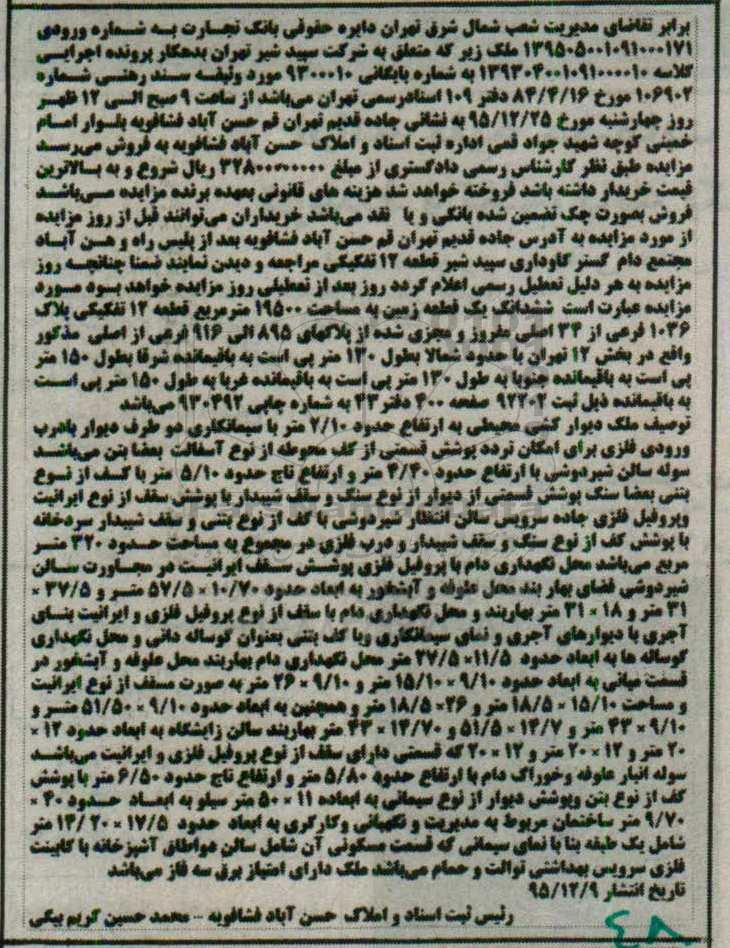 برابر تقاضای مدیریت شعب شمال شرق تهران دایره حقوقی بانک تجارت به شماره ورودی
۱۳۹۵۰۵۰۰۱۰۹۱۰۰۰۱۷۱ ملک زیر که متعلق به شرکت سپید شیر تهران بدهکار پرونده اجرایی
کلاسه ۱۳۹۳۰۴۰۰۱۰۹۱۰۰۰۰۱۰ به شماره بایگانی ۹۳۰۰۰۱۰ مورد وثیقه سند رهنی شماره
۱۰۶۹۰۲ مورخ ۸۴/۴/۱۶ دفتر ۱۰۹ اسنادرسمی تهران می‌باشد از ساعت ۹ صبح الی ۱۲ ظهر
روز چهارشنبه مورخ ۹۵/۱۲/۲۵ به نشانی جاده قدیم تهران قم حسن آباد فشافویه بلوار امام
خمینی کوچه شهید جواد قمی اداره ثبت اسناد و املاک حسن آباد فشافویه به فروش می‌رسد
مزایده طبق نظر کارشناس رسمی دادگستری از مبلغ ۳۲۸۰۰۰۰۰۰۰۰ ریال شروع و به بالاترین
قیمت خریدار داشته باشد فروخته خواهد شد هزینه های قانونی بعهده برنده مزایده می‌باشد
فروش بصورت چک تضمین شده بانکی و یا نقد می‌باشد خریداران می‌توانند قبل از روز مزایده
از مورد مزایده به آدرس جاده قدیم تهران قم حسن آباد فشافویه بعد از پلیس راه و هسن آباد
مجتمع دام گستر گاوداری سپید شیر قطعه ۱۲ تفکیکی مراجعه و دیدن نمایند ضمنا چنانچه روز
مزایده به هر دلیل تعطیل رسمی اعلام گردد روز بعد از تعطیلی روز مزایده خواهد بود مورد
مزایده عبارت است ششدانگ یک قطعه زمین به مساحت ۱۹۵۰۰ مترمربع قطعه ۱۲ تفکیکی پلاک
۱۰۳۶ فرعی از ۳۴ اصلی مفروز و مجزی شده از پلاکهای ۸۹۵ الی ۹۱۶ فرعی از اصلی مذکور
واقع در بخش ۱۲ تهران با حدود شمالا بطول ۱۳۰ متر پی است به باقیمانده شرقا بطول ۱۵۰ متر
پی است به باقیمانده جنوبا به طول ۱۳۰ متر پی است به باقیمانده غربا به طول ۱۵۰ متر پی است
به باقیمانده ذیل ثبت ۹۲۲۰۲ صفحه ۴۰۰ دفتر ۴۳ به شماره چاپی ۹۳۰۴۹۲ می‌باشد
توصیف ملک دیوار کشی محیطی به ارتفاع حدود ۲/۱۰ متر با سیمانکاری دو طرف دیوار بادرب
ورودی فلزی برای امکان تردد پوشش قسمتی از کف محوطه از نوع آسفالت بعضا بتن می‌باشد
سوله سالن شیردوشی با ارتفاع حدود ۴/۴۰ متر و ارتفاع تاج حدود ۵/۱۰ متر با کف از نوع
بتنی بعضا سنگ پوشش قسمتی از دیوار از نوع سنگ و سقف شیبدار با پوشش سقف از نوع ایرانیت
وپروفیل فلزی جاده سرویس سالن انتظار شیردوشی با کف از نوع بتنی و سقف شیبدار سردخانه
با پوشش کف از نوع سنگ و سقف شیبدار و درب فلزی در مجموع به مساحت حدود ۳۲۰ متر
مربع می‌باشد محل نگهداری دام با پروفیل فلزی پوشش سقف ایرانیت در مجاورت سالن
شیردوشی فضای بهار بند محل علوفه و آبشخور به ابعاد حدود ۱۰/۷۰ × ۵۷/۵ متر و ۳۷/۵ ×
۳۱ متر و ۱۸ × ۳۱ متر بهاربند و محل نگهداری دام با سقف از نوع پروفیل فلزی و ایرانیت بنای
آجری با دیوارهای آجری و نمای سیمانکاری وبا کف بتنی بعنوان گوساله دانی و محل نگهداری
گوساله ها به ابعاد حدود ۱۱/۵× ۲۷/۵ متر محل نگهداری دام بهاربند محل علوفه و آبشخور در
قسمت میانی به ابعاد حدود ۹/۱۰ × ۱۵/۱۰ متر و ۹/۱۰ × ۲۶ متر به صورت مسقف از نوع ایرانیت
و مساحت ۱۵/۱۰ × ۱۸/۵ متر و ۲۶× ۱۸/۵ متر و همچنین به ابعاد حدود ۹/۱۰ × ۵۱/۵۰ متر و
۹/۱۰ × ۴۳ متر و ۱۴/۷ × ۵۱/۵ و ۱۴/۷۰ × ۴۳ متر بهاربند سالن زایشگاه به ابعاد حدود ۱۲ ×
۲۰ متر و ۱۲ × ۲۰ متر و ۱۲ × ۲۰ که قسمتی دارای سقف از نوع پروفیل فلزی و ایرانیت می‌باشد
سوله انبار علوفه وخوراک دام با ارتفاع حدود ۵/۸۰ متر و ارتفاع تاج حدود ۶/۵۰ متر با پوشش
کف از نوع بتن وپوشش دیوار از نوع سیمانی به ابعاده ۱۱ × ۵۰ متر سیلو به ابعاد حدود ۴۰ ×
۹/۷۰ متر ساختمان مربوط به مدیریت و نگهبانی وکارگری به ابعاد حدود ۱۷/۵ × ۱۴/۲۰ متر
شامل یک طبقه بنا با نمای سیمانی که قسمت مسکونی آن شامل سالن دواطاق آشپزخانه با کابینت
فلزی سرویس بهداشتی توالت و حمام می‌باشد ملک دارای امتیاز برق سه فاز می‌باشد
تاریخ انتشار ۹۵/۱۲/۹
رئیس ثبت اسناد و املاک حسن آباد فشافویه – محمد حسین کریم بیگی